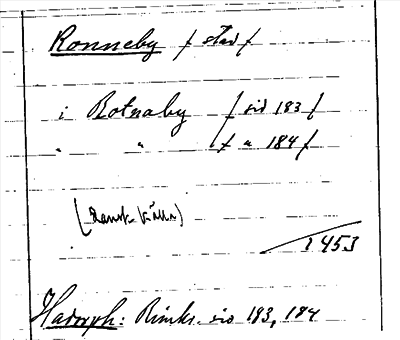 Ronneby / stad /
i Botnaby / sid 183 /
" " / " 184 /
(Dansk. källa)
1453
Hadorph: Rimkr. sid 183, 184